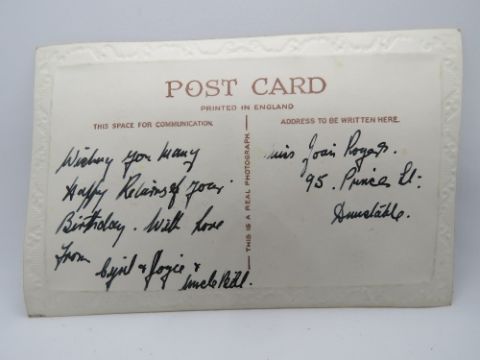 POST CARD
PRINTED IN ENGLAND
THIS SPACE FOR COMMUNICATION.
ADDRESS TO BE WRITTEN HERE.
THIS IS A REAL PHOTOGRAPH
Wishing you Many
Happy Returns of your
Birthday. With Love
From
Cyril & Joyce &
Uncle Bill.
Miss Joan Rogers.
95. Princes St.
Dunstable.